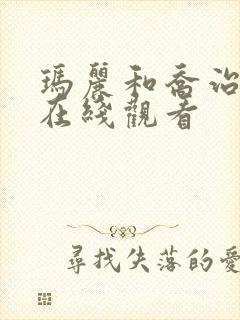 瑪麗和喬治
在綫觀看
尋找失落的愛